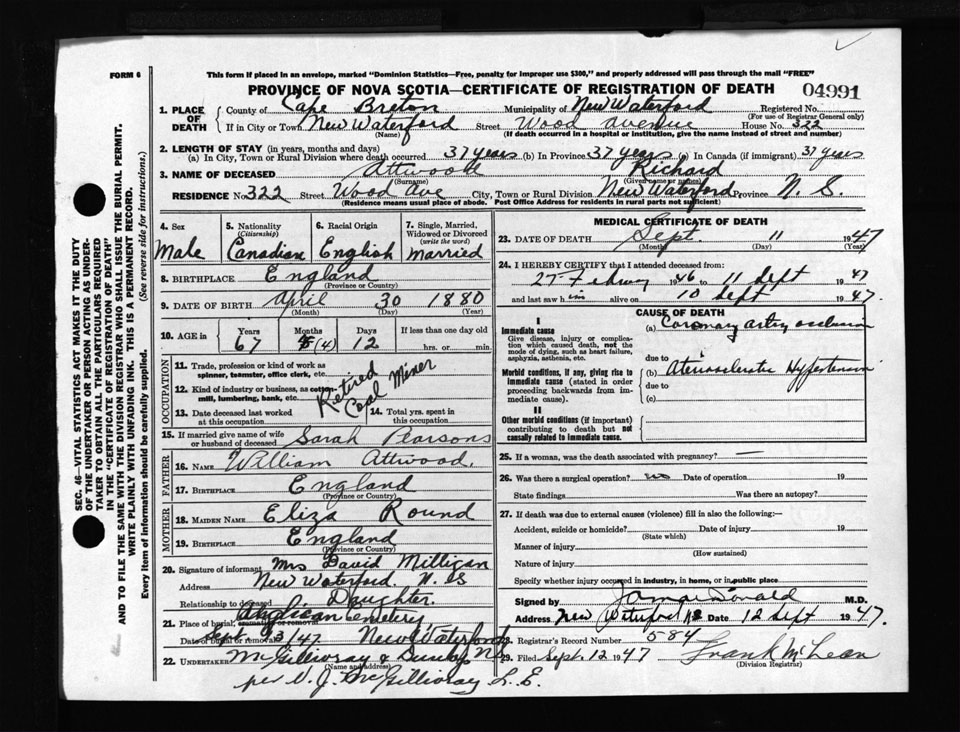 FORM 6
This form if placed in an envelope, marked "Dominion Statistics—Free, penalty for improper use $300," and properly addressed will pass through the mail "FREE"
PROVINCE OF NOVA SCOTIA—CERTIFICATE OF REGISTRATION OF DEATH 04991
1. PLACE OF DEATH County of Cape Breton Municipality of New Waterford Registered No.
(For use of Registrar General only)
If in City or Town New Waterford Street Wood Avenue House No. 322
(Name) (If death occurred in a hospital or institution, give the name instead of street and number)
2. LENGTH OF STAY (in years, months and days)
(a) In City, Town or Rural Division where death occurred 37 years (b) In Province 37 years (c) In Canada (if immigrant) 37 years
3. NAME OF DECEASED Attwood Richard
(Surname) (Given name or names)
RESIDENCE No. 322 Street Wood Ave City, Town or Rural Division New Waterford Province N. S.
(Residence means usual place of abode. Post Office Address for residents in rural parts not sufficient)
SEC. 46—VITAL STATISTICS ACT MAKES IT THE DUTY
OF THE UNDERTAKER OR PERSON ACTING AS UNDER-
TAKER TO OBTAIN ALL THE PARTICULARS REQUIRED
IN THE "CERTIFICATE OF REGISTRATION OF DEATH"
AND TO FILE THE SAME WITH THE DIVISION REGISTRAR WHO SHALL ISSUE THE BURIAL PERMIT.
WRITE PLAINLY WITH UNFADING INK. THIS IS A PERMANENT RECORD.
Every item of information should be carefully supplied. (See reverse side for instructions.)
4. Sex 5. Nationality 6. Racial Origin 7. Single, Married,
(Citizenship) Widowed or Divorced
(write the word)
Male Canadian English Married
8. BIRTHPLACE England
(Province or Country)
9. DATE OF BIRTH April 30 1880
(Month) (Day) (Year)
10. AGE in Years Months Days If less than one day old
67 (4) 12 hrs. or min.
OCCUPATION
11. Trade, profession or kind of work as
spinner, teamster, office clerk, etc.
12. Kind of industry or business, as cotton-
mill, lumbering, bank, etc.
Retired Coal Miner
13. Date deceased last worked
at this occupation
14. Total yrs. spent in
this occupation
15. If married give name of wife
or husband of deceased Sarah Pearsons
FATHER
16. NAME William Attwood.
17. BIRTHPLACE England
(Province or Country)
MOTHER
18. MAIDEN NAME Eliza Round
19. BIRTHPLACE England
(Province or Country)
20. Signature of informant Mrs David Milligan
Address New Waterford. N. S
Relationship to deceased Daughter.
21. Place of burial, cremation or removal Anglican Cemetery
Date of burial or removal Sept 13/47. New Waterford
22. UNDERTAKER McGillivray & Dunlop N.S
(Name and address)
per V. J. McGillivray L. E.
MEDICAL CERTIFICATE OF DEATH
23. DATE OF DEATH Sept. 11 1947
(Month) (Day) (Year)
24. I HEREBY CERTIFY that I attended deceased from:
27 February 1946 to 11 Sept 1947
and last saw him alive on 10 Sept 1947.
CAUSE OF DEATH
I
Immediate cause
Give disease, injury or complica-
tion which caused death, not the
mode of dying, such as heart failure,
asphyxia, asthenia, etc.
(a) Coronary artery occlusion
due to
Morbid conditions, if any, giving rise to
immediate cause (stated in order
proceeding backwards from im-
mediate cause).
(b) Hypertension
due to
(c)
II
Other morbid conditions (if important)
contributing to death but not
causally related to immediate cause.
25. If a woman, was the death associated with pregnancy? —
26. Was there a surgical operation? no Date of operation 19
State findings Was there an autopsy?
27. If death was due to external causes (violence) fill in also the following:—
Accident, suicide or homicide? Date of injury 19
(State which)
Manner of injury
(How sustained)
Nature of injury
Specify whether injury occurred in industry, in home, or in public place
Signed by M.D.
Address New Waterford NS Date 12 Sept 1947.
28. Registrar's Record Number 584
29. Filed Sept. 12 1947 Frank McLean
(Division Registrar)